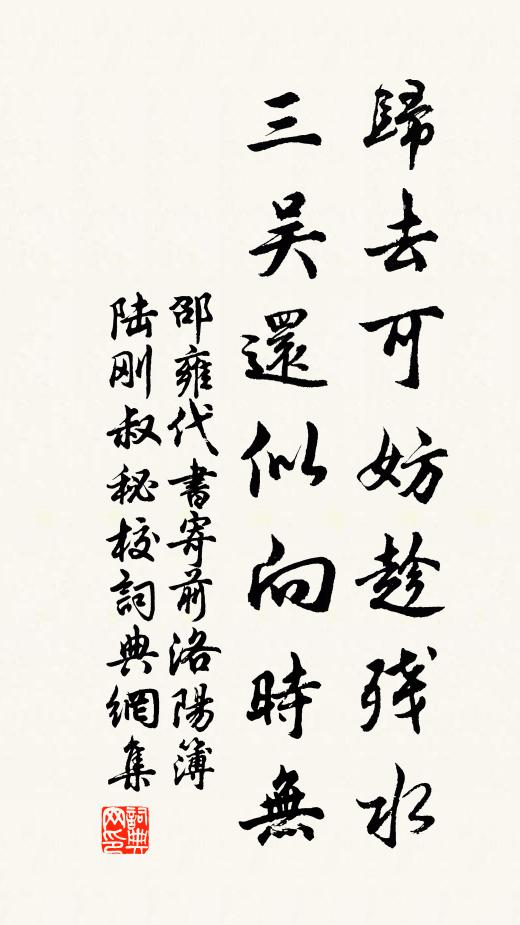 歸去可妨趁殘水
三吴還似向時無
邵雍代書寄前洛陽簿
陸刚叔秘校詞典網集
詞典網印